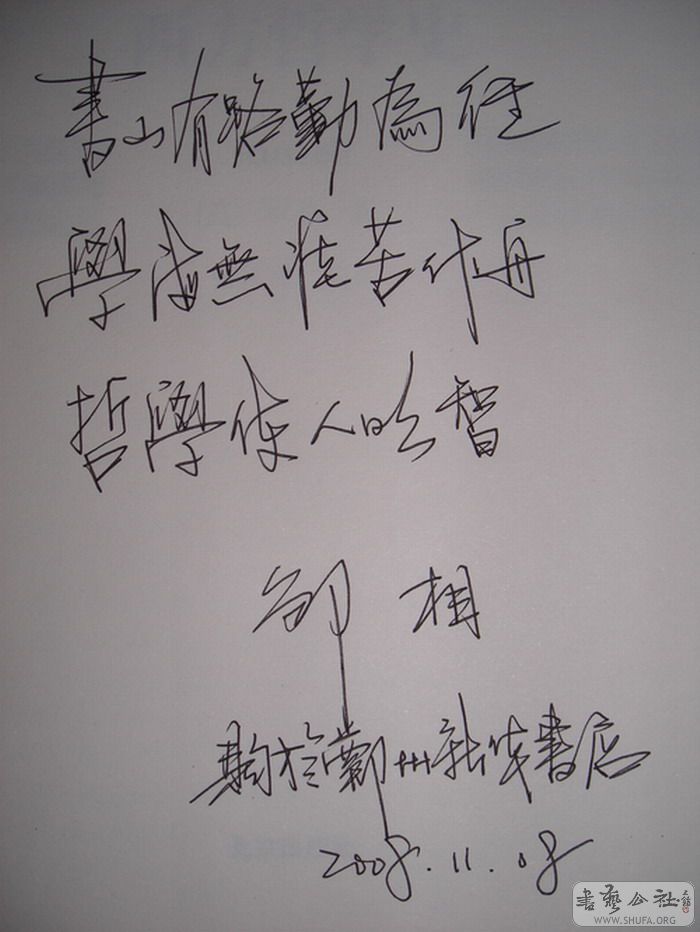 書山有路勤為徑
學海無涯苦作舟
哲學使人明智
邹相
購於鄭州新华書店
2008.11.08
書藝公社
WWW.SHUFA.ORG